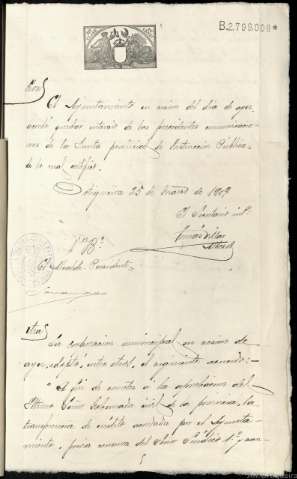 B.2.799.009*
El Ayuntamiento en sesión del día de ayer
quedó enterado de las precedentes comunicacio-
nes de la Junta provincial de Instrucción Pública
de lo cual certifico.
25 de Enero de 1909
El Secretario int.
Vº Bº
El Alcalde-Presidente
La corporación municipal en sesión de
ayer, adoptó, entre otros, el siguiente acuerdo:
A fin de someter a la aprobación del
Iltmo. Señor Gobernador civil de la provincia, la
transferencia de crédito acordada por el Ayunta-
miento, previa censura del Señor Síndico